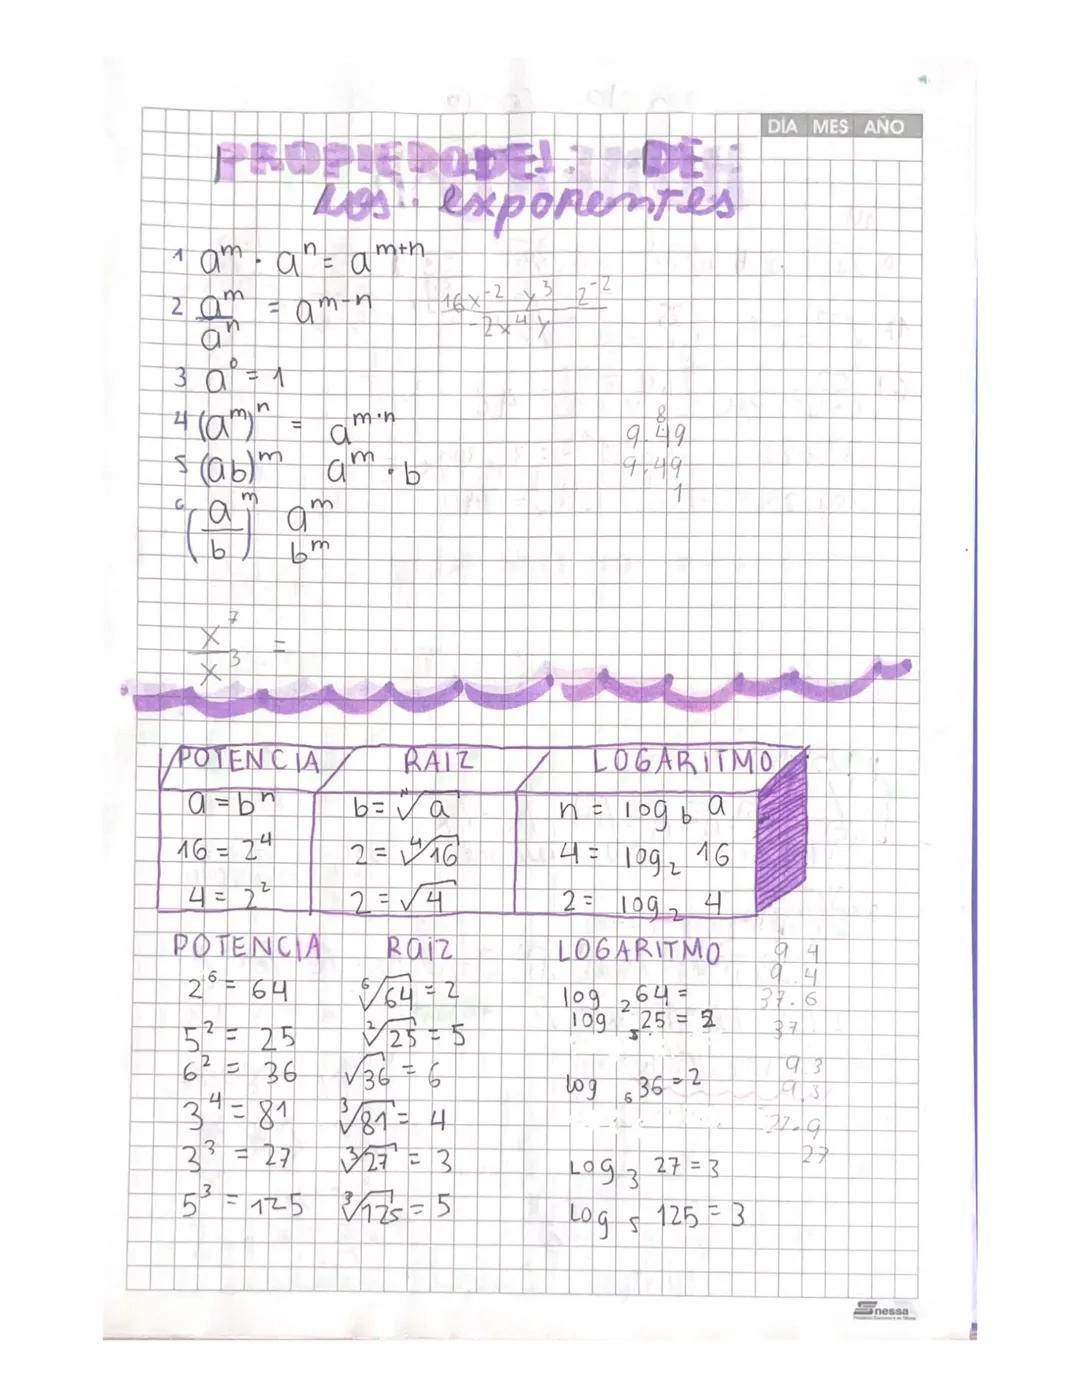 DÍA MES AÑO
PROPIEDADES DE
Los exponentes
1 a^m · a^n = a^(m+n)
2 a^m/a^n = a^(m-n)
16x^-2 y^3 z^-2 / -2x^4 y
3 a^0 = 1
4 (a^m)^n = a^(m·n)
8
9.49
5 (ab)^m a^m · b
9.49
1
6 (a/b)^m a^m/b^m
x^7/x^3 =
POTENCIA RAIZ LOGARITMO
a = b^n b = ⁿ√a n = log_b a
16 = 2^4 2 = ⁴√16 4 = log_2 16
4 = 2^2 2 = √4 2 = log_2 4
POTENCIA RaiZ LOGARITMO
9 4
2^6 = 64 ⁶√64 = 2 log_2 64 =
9.4
37.6
5^2 = 25 ²√25 = 5 log_5 25 = 2
37
6^2 = 36 √36 = 6 log_6 36 = 2
9.3
9.3
3^4 = 81 ³√81 = 4
27.9
3^3 = 27 ³√27 = 3 Log_3 27 = 3
27
5^3 = 125 ³√125 = 5 Log_5 125 = 3
nessa